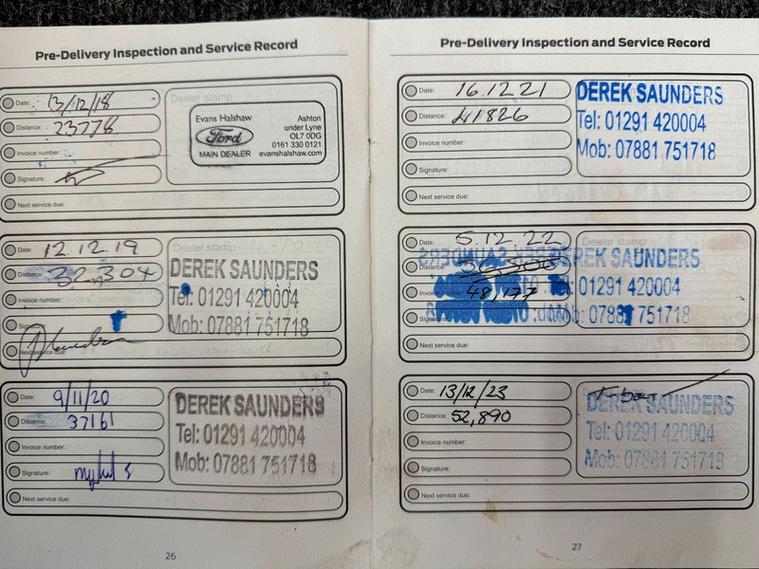 Pre-Delivery Inspection and Service Record
Date: 13/12/18
Distance: 23778
Invoice number:
Signature:
Next service due:
Dealer stamp
Evans Halshaw
Ford
MAIN DEALER
Ashton
under Lyne
OL7 0DG
0161 330 0121
evanshalshaw.com
Date: 12.12.19
Distance: 32,304
Invoice number:
Next service due:
Dealer stamp
DEREK SAUNDERS
Tel: 01291 420004
Mob: 07881 751718
Date: 9/11/20
Distance: 37161
Invoice number:
Signature:
Next service due:
DEREK SAUNDERS
Tel: 01291 420004
Mob: 07881 751718
26
Pre-Delivery Inspection and Service Record
Date: 16.12.21
Distance: 41826
Invoice number:
Signature:
Next service due:
DEREK SAUNDERS
Tel: 01291 420004
Mob: 07881 751718
Date: 5.12.22
Distance:
48,177
Next service due:
Dealer stamp
DEREK SAUNDERS
Tel: 01291 420004
Mob: 07881 751718
Date: 13/12/23
Distance: 52,890
Invoice number:
Signature:
Next service due:
DEREK SAUNDERS
Tel: 01291 420004
Mob: 07881 751718
27